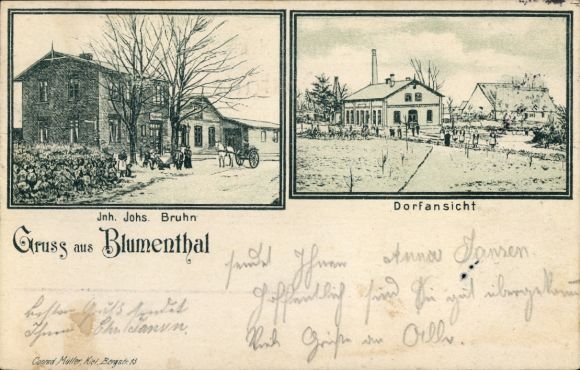 Jnh. Johs. Bruhn
Dorfansicht
Gruss aus Blumenthal
sendet Ihnen Anna Jansen.
Hoffentlich sind Sie gut übergekomm
Viele Grüße an Alle.
besten Gruß sendet
Ihnen
Conrad Müller, Kiel, Bergstr. 13